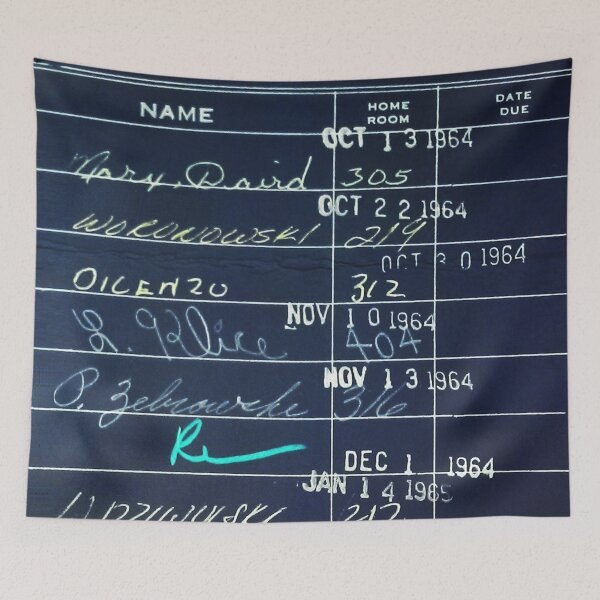 NAME HOME ROOM DATE DUE
OCT 13 1964
Mary Daird 305
OCT 22 1964
WORONOWSKI 219
OCT 30 1964
OICENZO 312
NOV 10 1964
404
NOV 13 1964
P. Zebrowski 316
DEC 1 1964
JAN 14 1965